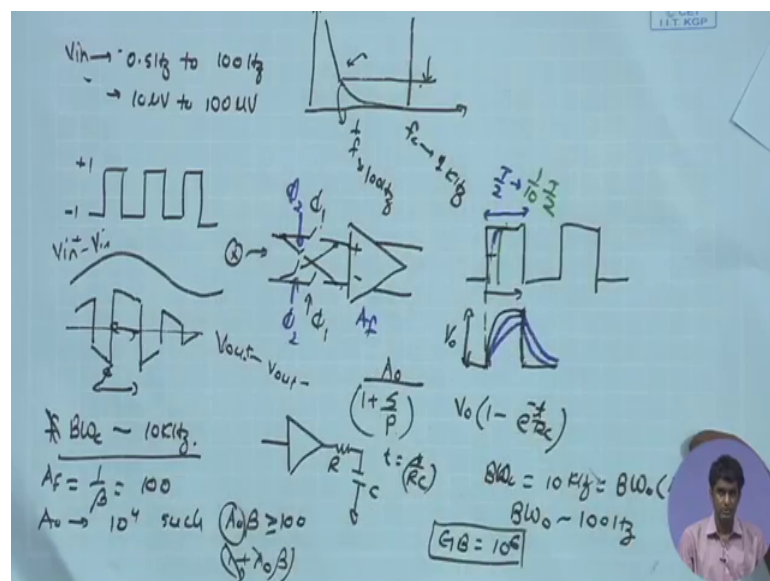 © CET
I.I.T. KGP
Vin → 0.5Hz to 100Hz
→ 10μV to 100μV
f
100Hz
fc → 2KHz
+1
-1
Vin+ - Vin-
ⓧ →
Φ2 Φ1
+
-
Φ2 Φ1
Af
T/2 → 1/10 T/2
V0
Vout - Vout-
A0 / (1 + S/P)
V0 (1 - e^-t/RC)
BWc ~ 10KHz.
R
C
t = 1/RC
Af = 1/β = 100
A0 → 10^4 such A0β ≥ 100
(1 + A0β)
BWc = 10 KHz = BW0 (
BW0 ~ 100Hz
GB = 10^6